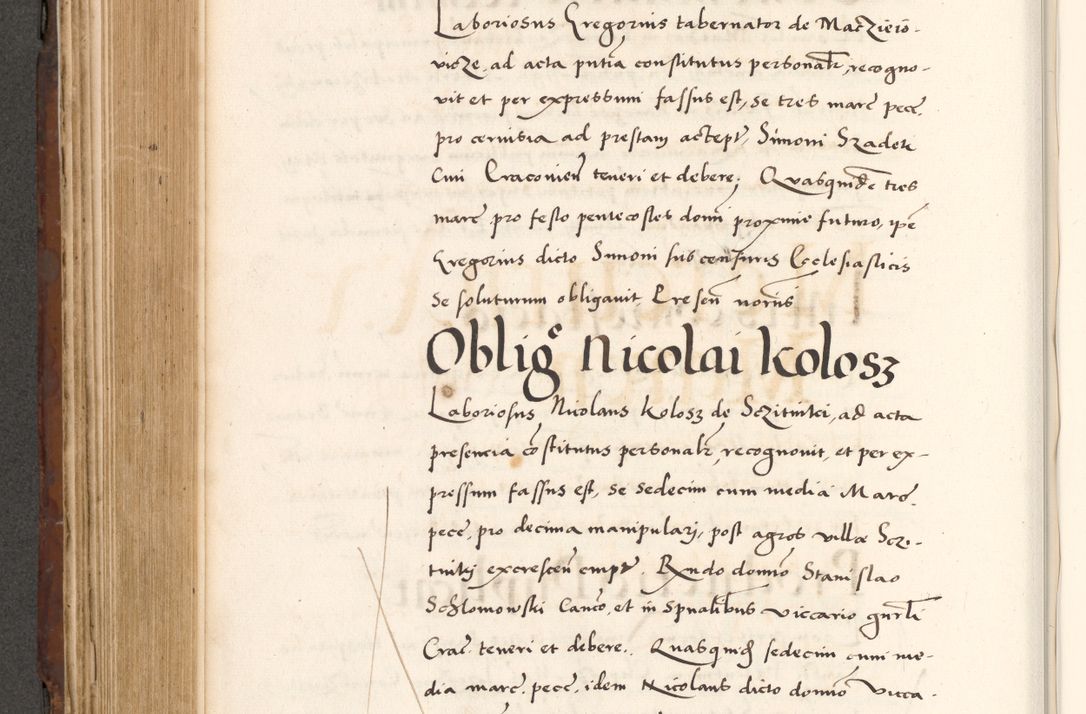 Laboriosus Gregorius tabernator de Maczieio-
vicze, ad acta pntia constitutus personalr, recogno-
vit et per expressum fassus est, se tres marc pecc.
pro cervisia ad prestam accept, Simoni Szadeti
Civi Cracovien teneri et debere; Quasquide tres
marc pro festo pentecostes domi proxime futuro, ipe
Gregorius dicto Simoni sub censuris Ecclesiasticis
se soluturum obligavit. Presen noris
Oblige Nicolai Kolosz
Laboriosus Nicolaus Kolosz de Sczitniki, ad acta
presencia costitutus personalr, recognovit, et per ex-
pressum fassus est, se sedecim cum media Marc.
pecc, pro decima manipulari, post agros villae Sczi-
tniky excrescen empt. Rndo domino Stanislao
Schlomowski Canco, et in Spualibus viccario gnrli
Crac. teneri et debere. Quasquidem sedecim cum me-
dia marc. pecc, idem Nicolaus dicto domino vicca-